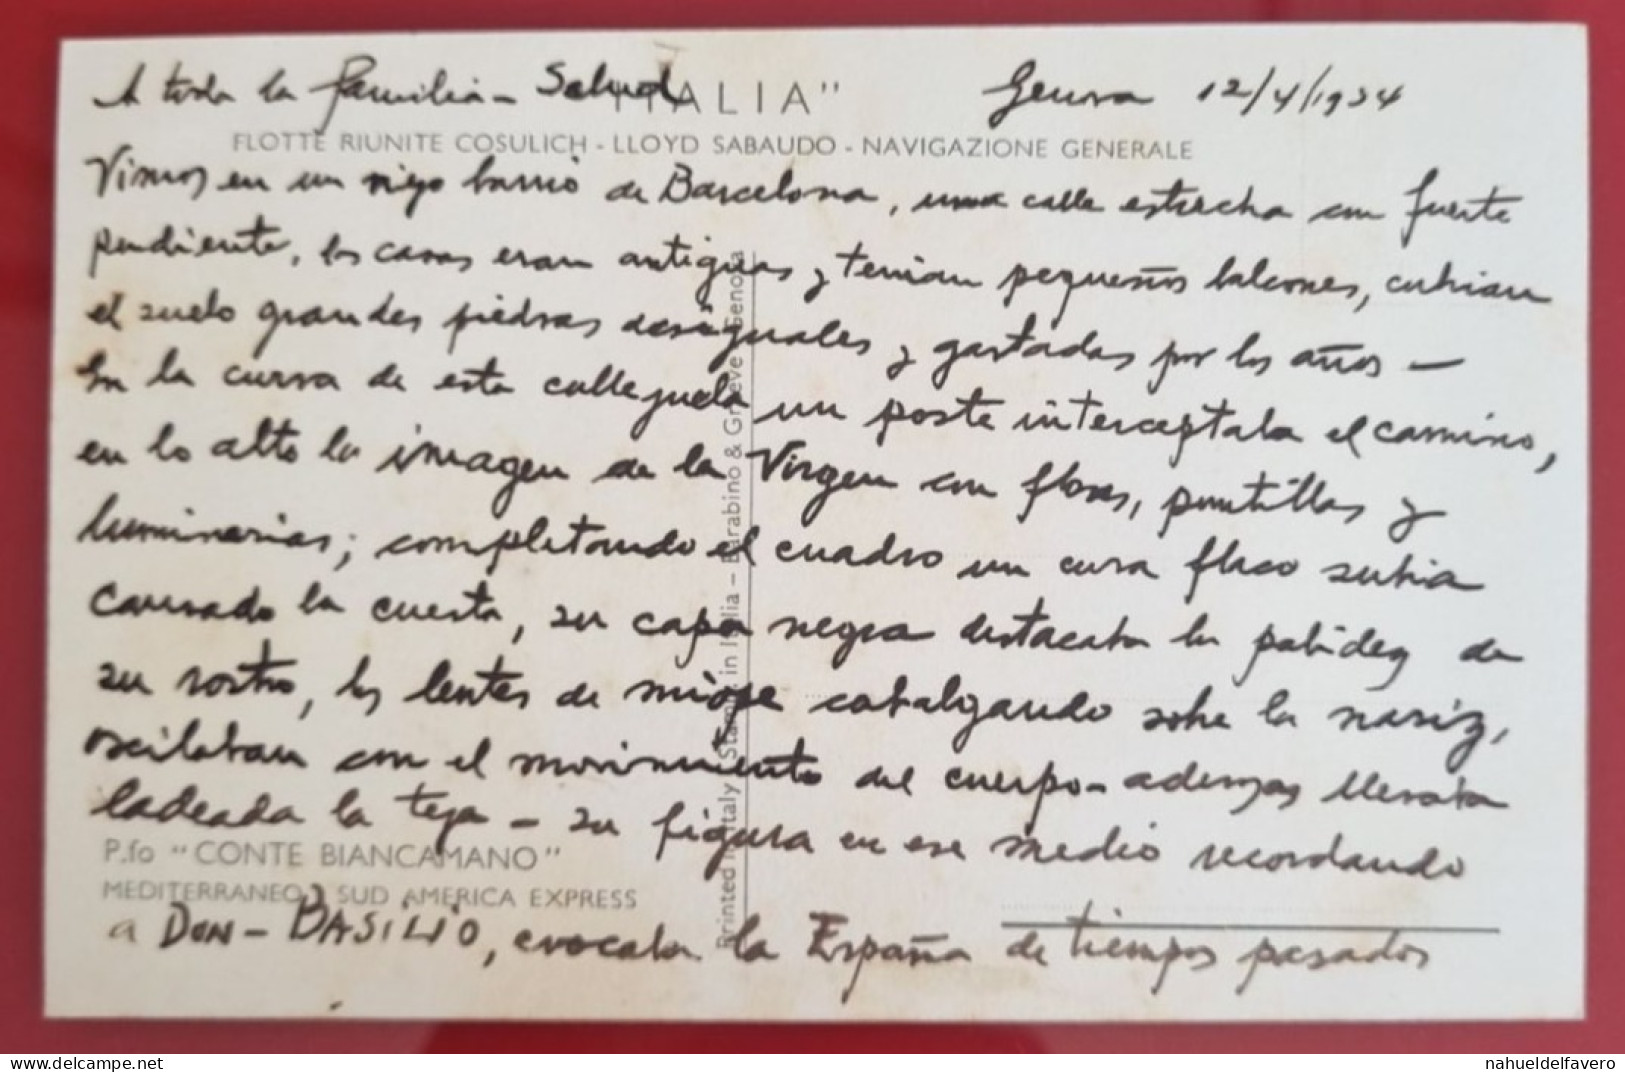 A toda la familia - Salud
"ITALIA"
Genova 12/4/1934
FLOTTE RIUNITE COSULICH - LLOYD SABAUDO - NAVIGAZIONE GENERALE
Vimos en un viejo barrio de Barcelona, una calle estrecha con fuerte
pendiente, las casas eran antiguas y tenian pequeños balcones, cubrian
el suelo grandes piedras desiguales y gastadas por los años -
En la curva de esta callejuela un poste interceptaba el camino,
en lo alto la imagen de la Virgen con flores, puntillas y
luminarias; completando el cuadro un cura flaco subia
cansado la cuesta, su capa negra destacaba la palidez de
su rostro, los lentes de miope cabalgando sobre la nariz,
oscilaban con el movimiento del cuerpo - ademas llevaba
ladeada la teja - su figura en ese medio recordando
P.fo "CONTE BIANCAMANO"
MEDITERRANEO SUD AMERICA EXPRESS
a DON - BASILIO, evocaba la España de tiempos pasados
Printed in Italy - Stampato in Italia - Barabino & Graeve - Genova
nahueldelfavero